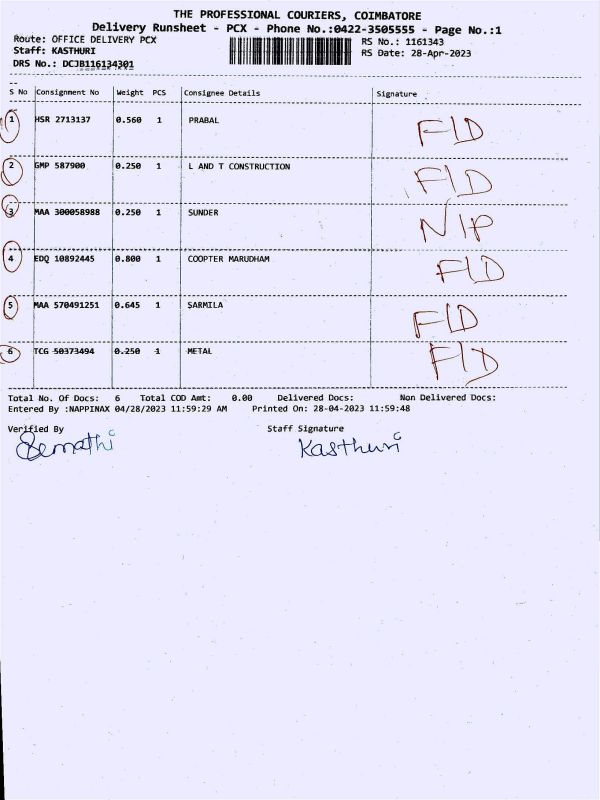 THE PROFESSIONAL COURIERS, COIMBATORE
Delivery Runsheet - PCX - Phone No.:0422-3505555 - Page No.:1
Route: OFFICE DELIVERY PCX RS No.: 1161343
Staff: KASTHURI RS Date: 28-Apr-2023
DRS No.: DCJB116134301
S No Consignment No Weight PCS Consignee Details Signature
1 HSR 2713137 0.560 1 PRABAL F\D
2 GMP 587900 0.250 1 L AND T CONSTRUCTION F\D
3 MAA 300058988 0.250 1 SUNDER N/P
4 EDQ 10892445 0.800 1 COOPTER MARUDHAM F\D
5 MAA 570491251 0.645 1 SARMILA F\D
6 TCG 50373494 0.250 1 METAL F\D
Total No. Of Docs: 6 Total COD Amt: 0.00 Delivered Docs: Non Delivered Docs:
Entered By :NAPPINAX 04/28/2023 11:59:29 AM Printed On: 28-04-2023 11:59:48
Verified By Staff Signature
Kasthuri